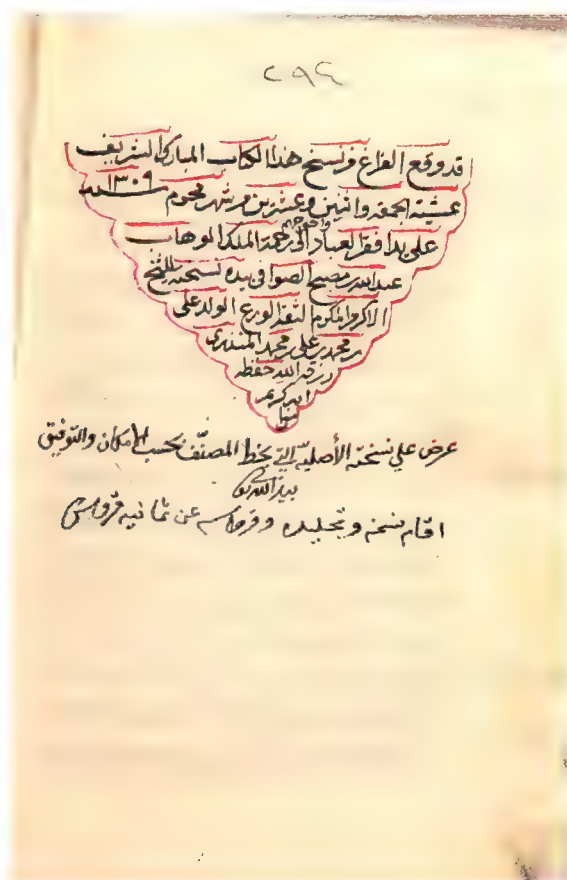 ٢٩٤
قد وقع الفراغ من نسخ هذا الكتاب المبارك الشريف
عشية الجمعة واثنين وعشرين من شهر محرم سنة ١٣٠٩
على يد افقر العباد واحوجهم الى رحمة الملك الوهاب
عبدالله بن مصبح الصوافي بيده نسخته للشيخ
الاكرم المكرم الثقة الورع الولد علي
بن محمد بن علي بن محمد المنذري
رزقه الله حفظه
انه كريم
عرض علي نسخته الأصلية التي بخط المصنّف بحسب الامكان والتوفيق
بيد الله
نسخه وتجليده وقرطاسه عن ثمانية قروش